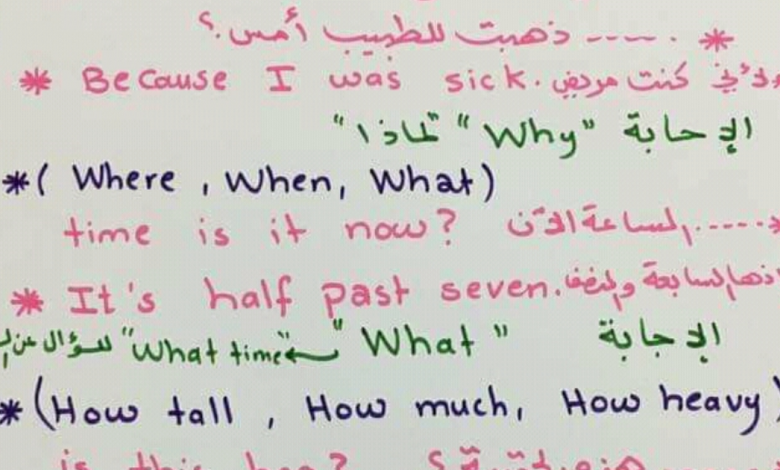 * ..... ذهبت للطبيب أمس؟
* Because I was sick. لأني كنت مريض
الإجابة "Why" "لماذا"
*( Where , When, What)
..... الساعة الآن time is it now?
* It's half past seven. إنها السابعة والنصف
الإجابة "What" ← "What time" للسؤال عن
*(How tall , How much, How heavy)
is this ؟